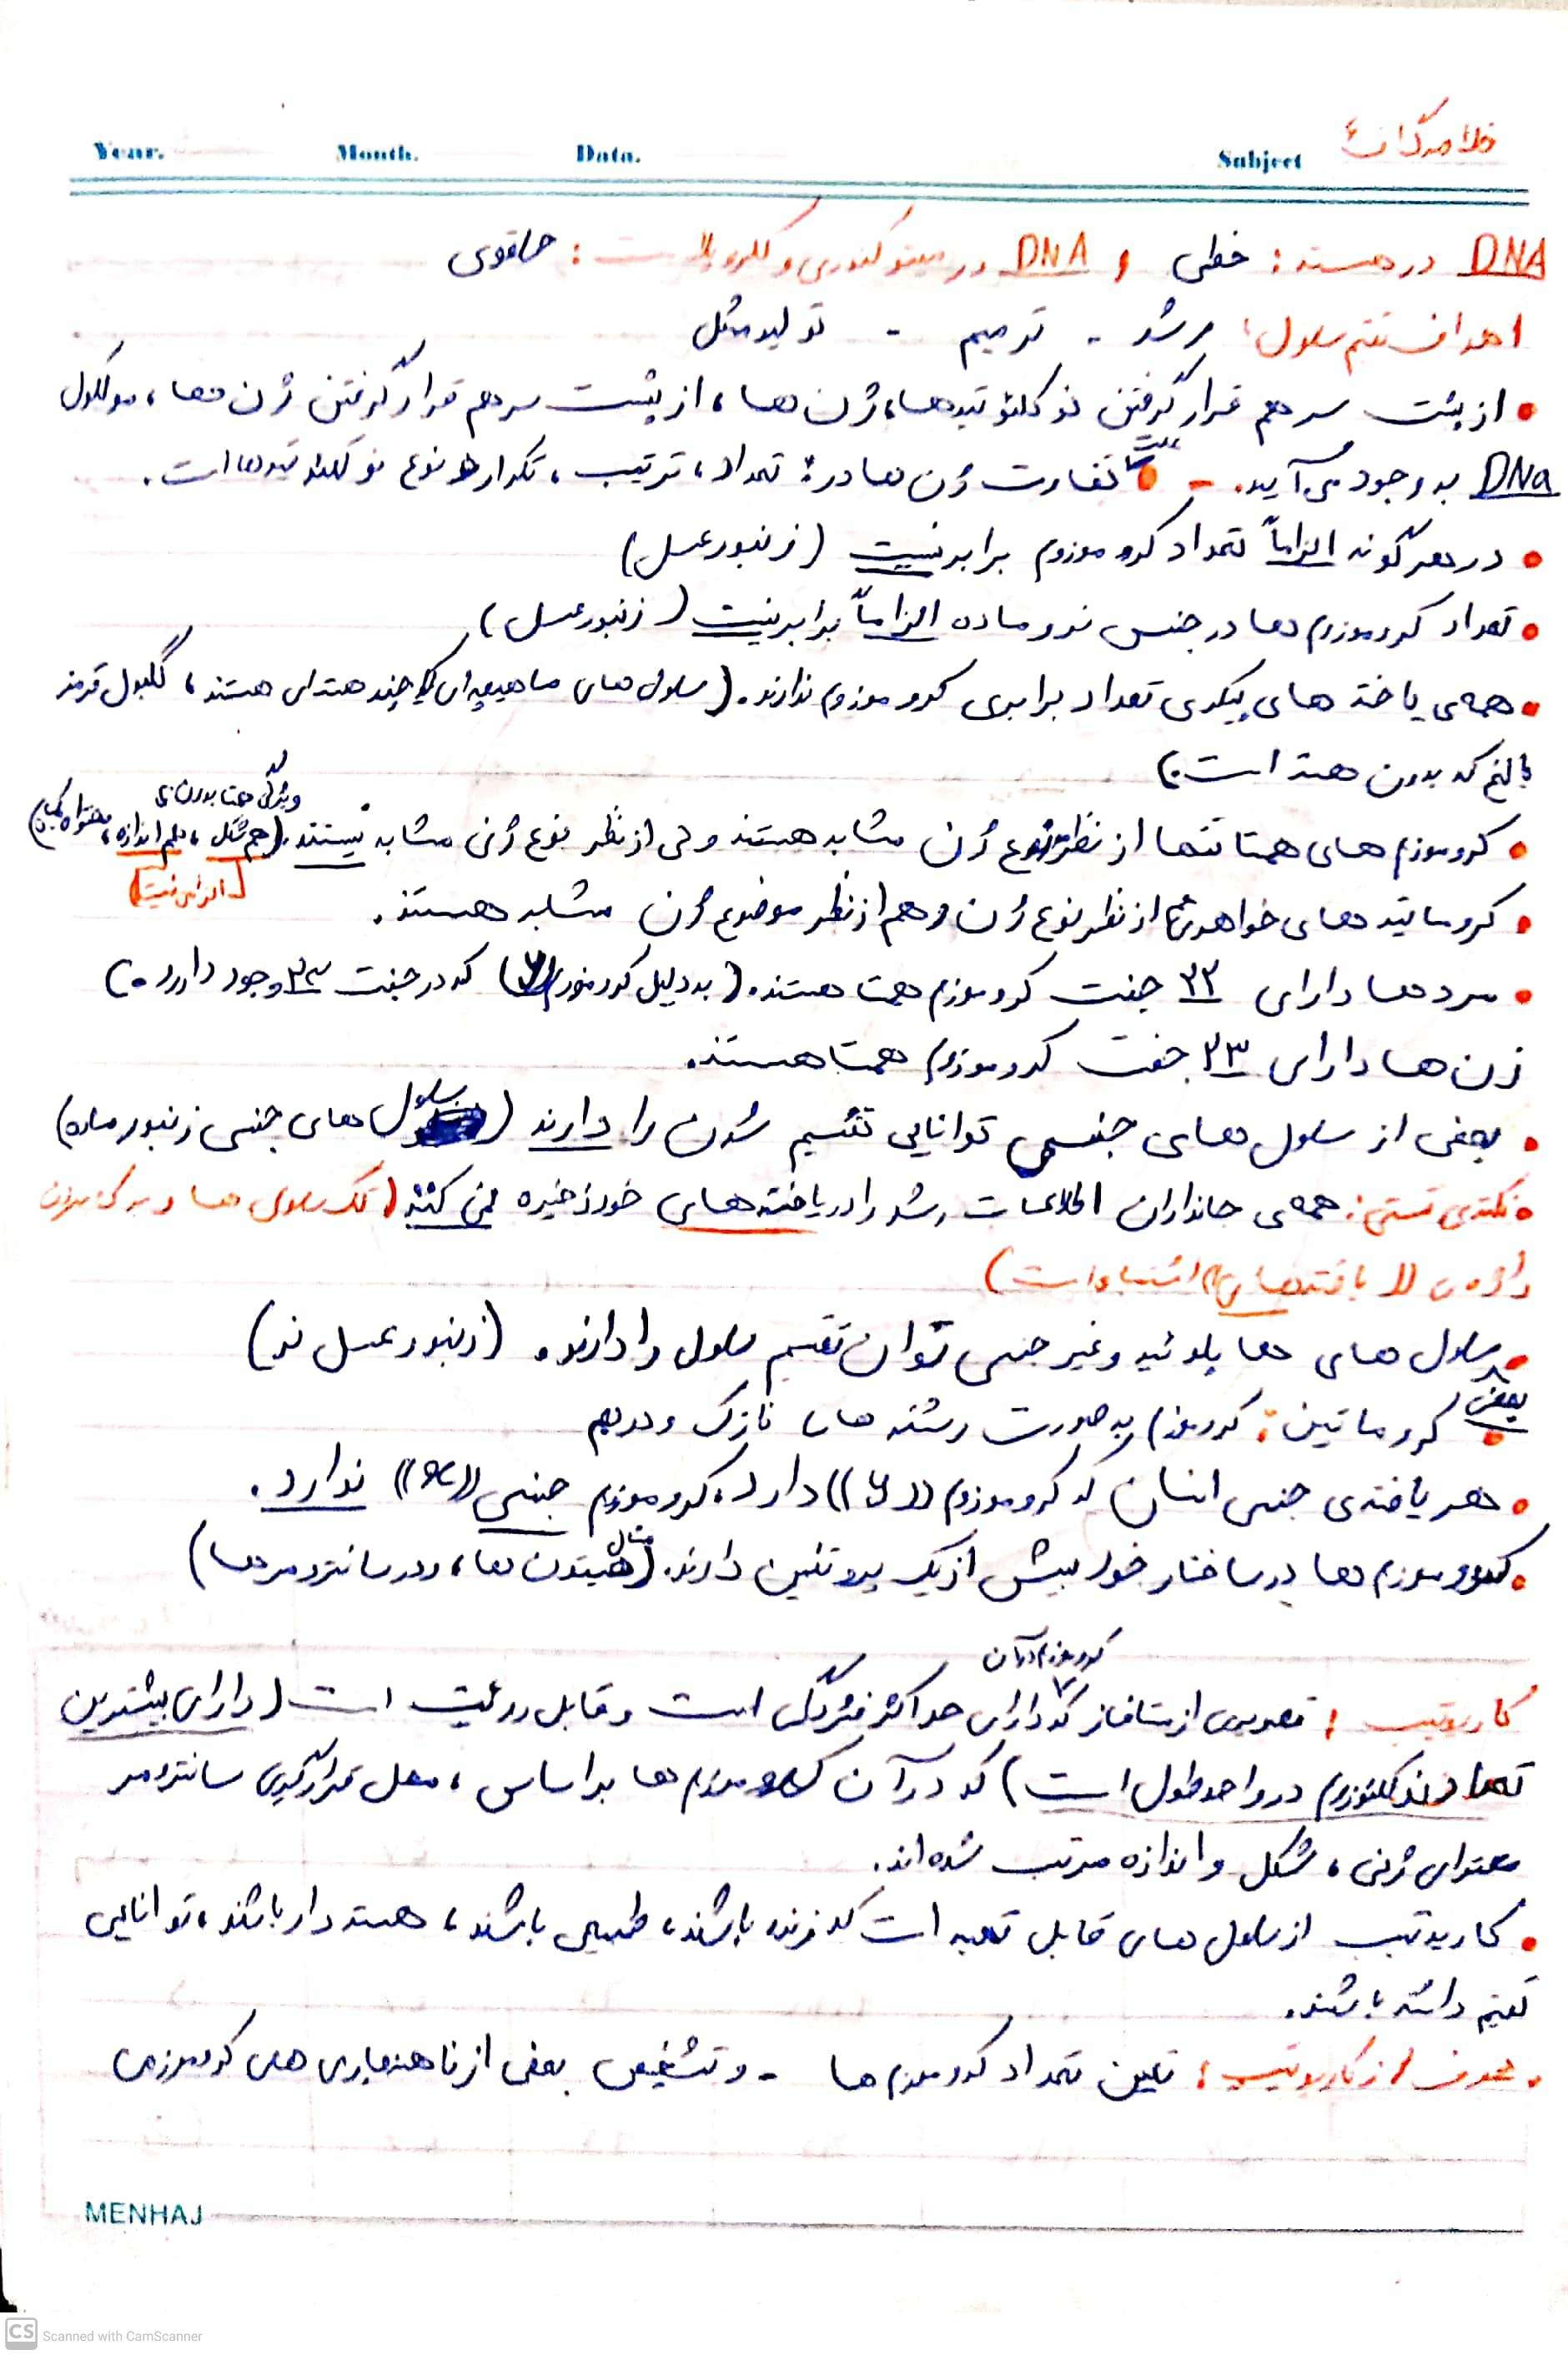 Year. Month. Data. Subject خلاصه نکات:
DNA در هسته: خطی و DNA در میتوکندری و کلروپلاست: حلقوی
اهداف تقسیم سلول: رشد - ترمیم - تولیدمثل
• از پشت سر هم قرار گرفتن نوکلئوتیدها، ژن ها، از پشت سر هم قرار گرفتن ژن ها، مولکول
DNA به وجود می آید. - • علت تفاوت ژن ها در: تعداد، ترتیب، تکرار و نوع نوکلئوتیدها است.
• در هر گونه الزاماً تعداد کروموزوم برابر نیست (زنبور عسل)
• تعداد کروموزوم ها در جنس نر و ماده الزاماً برابر نیست (زنبور عسل)
• همه ی یاخته های پیکری تعداد برابری کروموزوم ندارند. (سلول های ماهیچه ای که چند هسته ای هستند، گلبول قرمز
بالغ که بدون هسته است.)
ویژگی همتا بودن:
• کروموزوم های همتا تنها از نظر نوع ژن مشابه هستند ولی از نظر نوع ژنی مشابه نیستند. (هم شکل، هم اندازه، محتوا یکی)
الزامی نیست
• کروماتید های خواهری هم از نظر نوع ژن و هم از نظر موضوع ژن مشابه هستند.
• مردها دارای ۲۲ جفت کروموزوم همتا هستند. (به دلیل کروموزوم y که در جفت ۲۳ وجود دارد.)
زن ها دارای ۲۳ جفت کروموزوم همتا هستند.
• بعضی از سلول های جنسی توانایی تقسیم شدن را دارند (سلول های جنسی زنبور ماده)
• نکته ی تستی: همه ی جانداران اطلاعات رشد را در یاخته های خود ذخیره نمی کنند (تک سلولی ها و به کار بردن
واژه ی «یاخته های» اشتباه است)
• بعضی سلول های هاپلوئید و غیر جنسی توان تقسیم سلول را دارند. (زنبور عسل نر)
• کروماتین: کروموزوم به صورت رشته های نازک و درهم
• هر یاخته ی جنسی انسان که کروموزوم «y» دارد، کروموزوم جنسی «x» ندارد.
• کروموزوم ها در ساختار خود بیش از یک پروتئین دارند. (مثال هیستون ها، و در سانترومرها)
کاریوتیپ: تصویری از متافاز که کروموزوم در آن دارای حداکثر فشردگی است و قابل رویت است (دارای بیشترین
تعداد نوکلئوزوم در واحد طول است) که در آن کروموزوم ها بر اساس، محل قرارگیری سانترومر
محتوای ژنی، شکل و اندازه مرتب شده اند.
• کاریوتیپ از سلول های قابل تهیه است که زنده باشند، طبیعی باشند، هسته دار باشند، توانایی
تقسیم داشته باشند.
• هدف از کاریوتیپ: تعیین تعداد کروموزوم ها - و تشخیص بعضی از ناهنجاری های کروموزومی
MENHAJ
CS Scanned with CamScanner